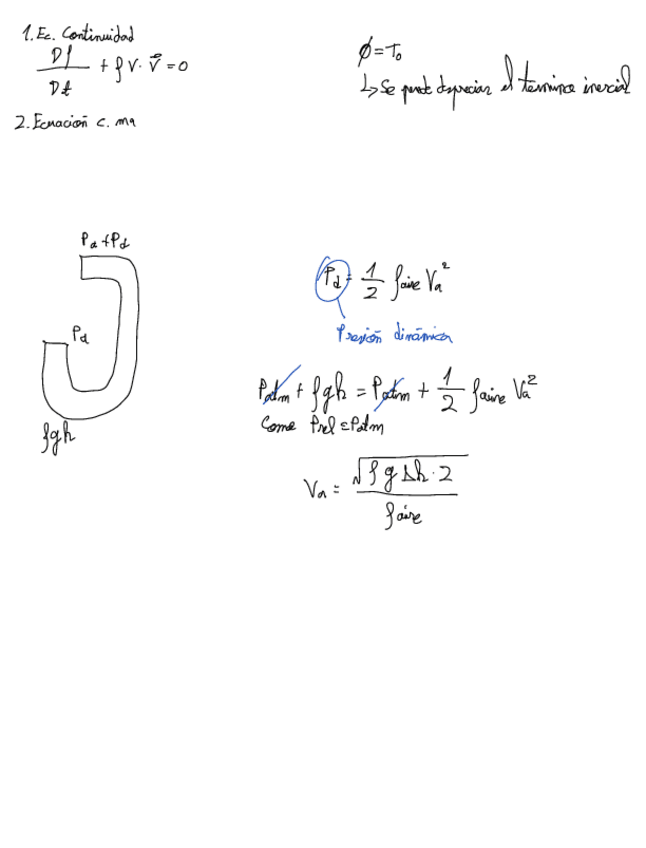 1. Ec. Continuidad
Dρ/Dt + ρ∇· v⃗ = 0
2. Ecuación c. ma
ϕ = T₀
↳ Se puede despreciar el termino inercial
Pa + Pd
Pa
ρgh
Pd = 1/2 ρaire Va²
Presión dinámica
Patm + ρgh = Patm + 1/2 ρaire Va²
Como Prel = Patm
Va = √(ρ g Δh · 2) / ρaire